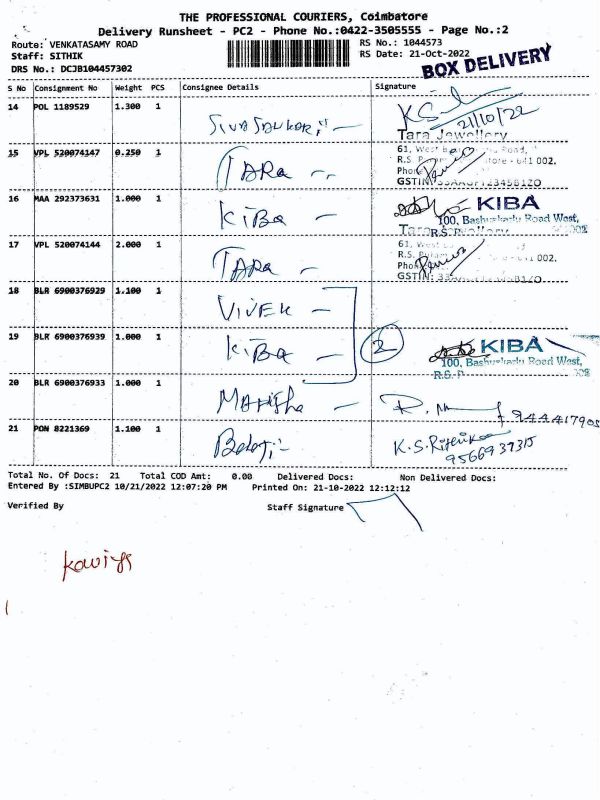 THE PROFESSIONAL COURIERS, Coimbatore
Delivery Runsheet - PC2 - Phone No.:0422-3505555 - Page No.:2
Route: VENKATASAMY ROAD RS No.: 1044573
Staff: SITHIK RS Date: 21-Oct-2022
DRS No.: DCJB104457302 BOX DELIVERY
S No Consignment No Weight PCS Consignee Details Signature
14 POL 1189529 1.300 1
21/10/22
Tara Jewellery
15 VPL 520074147 0.250 1 TARA
61, West Road,
R.S. 641 002.
GSTIN:
16 MAA 292373631 1.000 1 KiBa KIBA
100, Bashyakarlu Road West,
R.S.
17 VPL 520074144 2.000 1 TARA
61, West
R.S. Puram 002.
GSTIN:
18 BLR 6900376929 1.100 1 VIVEK
19 BLR 6900376939 1.000 1 KiBa 2 KIBA
100, Bashyakarlu Road West,
R.S.
20 BLR 6900376933 1.000 1 MANisha
21 PON 8221369 1.100 1 Balaji K.S.
9566937315
Total No. Of Docs: 21 Total COD Amt: 0.00 Delivered Docs: Non Delivered Docs:
Entered By :SIMBUPC2 10/21/2022 12:07:20 PM Printed On: 21-10-2022 12:12:12
Verified By Staff Signature